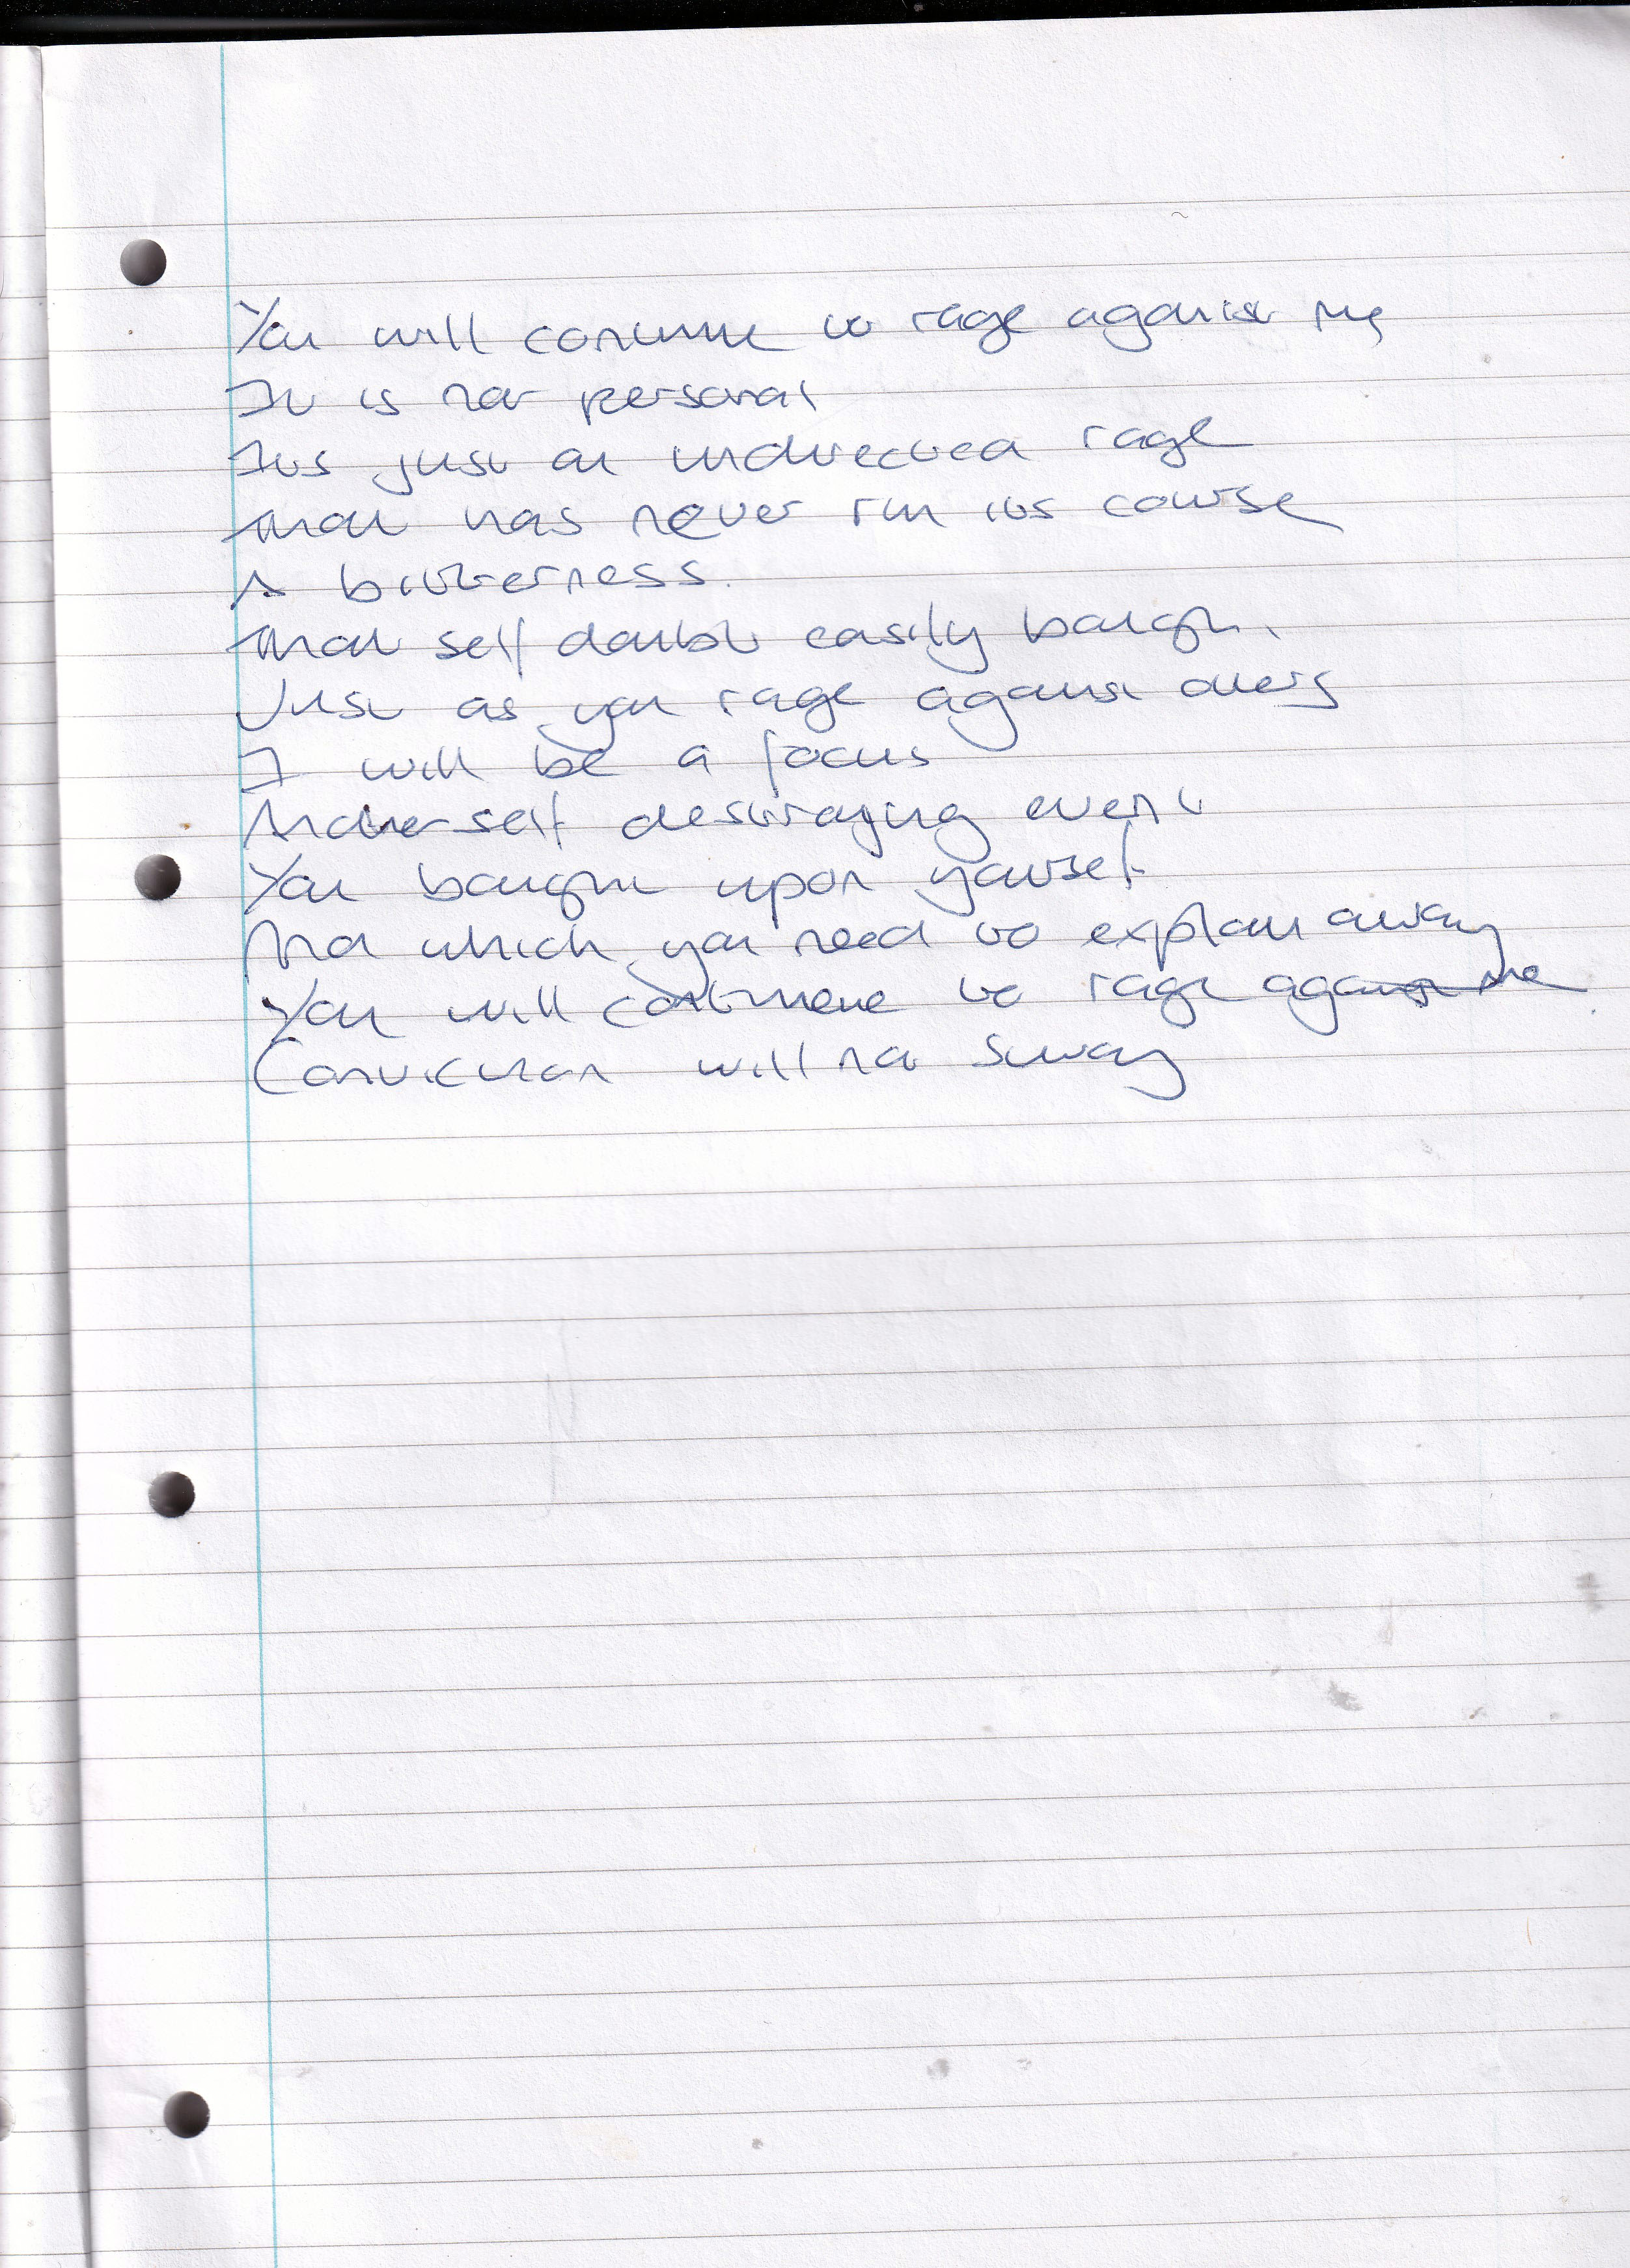 You will continue to rage against me
It is not personal
Its just an undirected rage
that has never run its course
A bitterness.
that self doubt easily bought.
Just as you rage against others
I will be a focus
Another self destroying event
You bought upon yourself
And which you need to explain away
You will continue to rage against me
Conviction will not sway